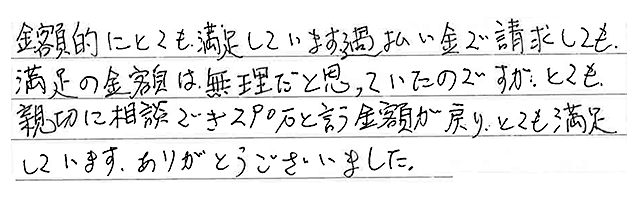 金額的にとても満足しています。過払い金で請求しても、
満足の金額は無理だと思っていたのですが、とても
親切に相談でき290万と言う金額が戻り、とても満足
しています。ありがとうございました。